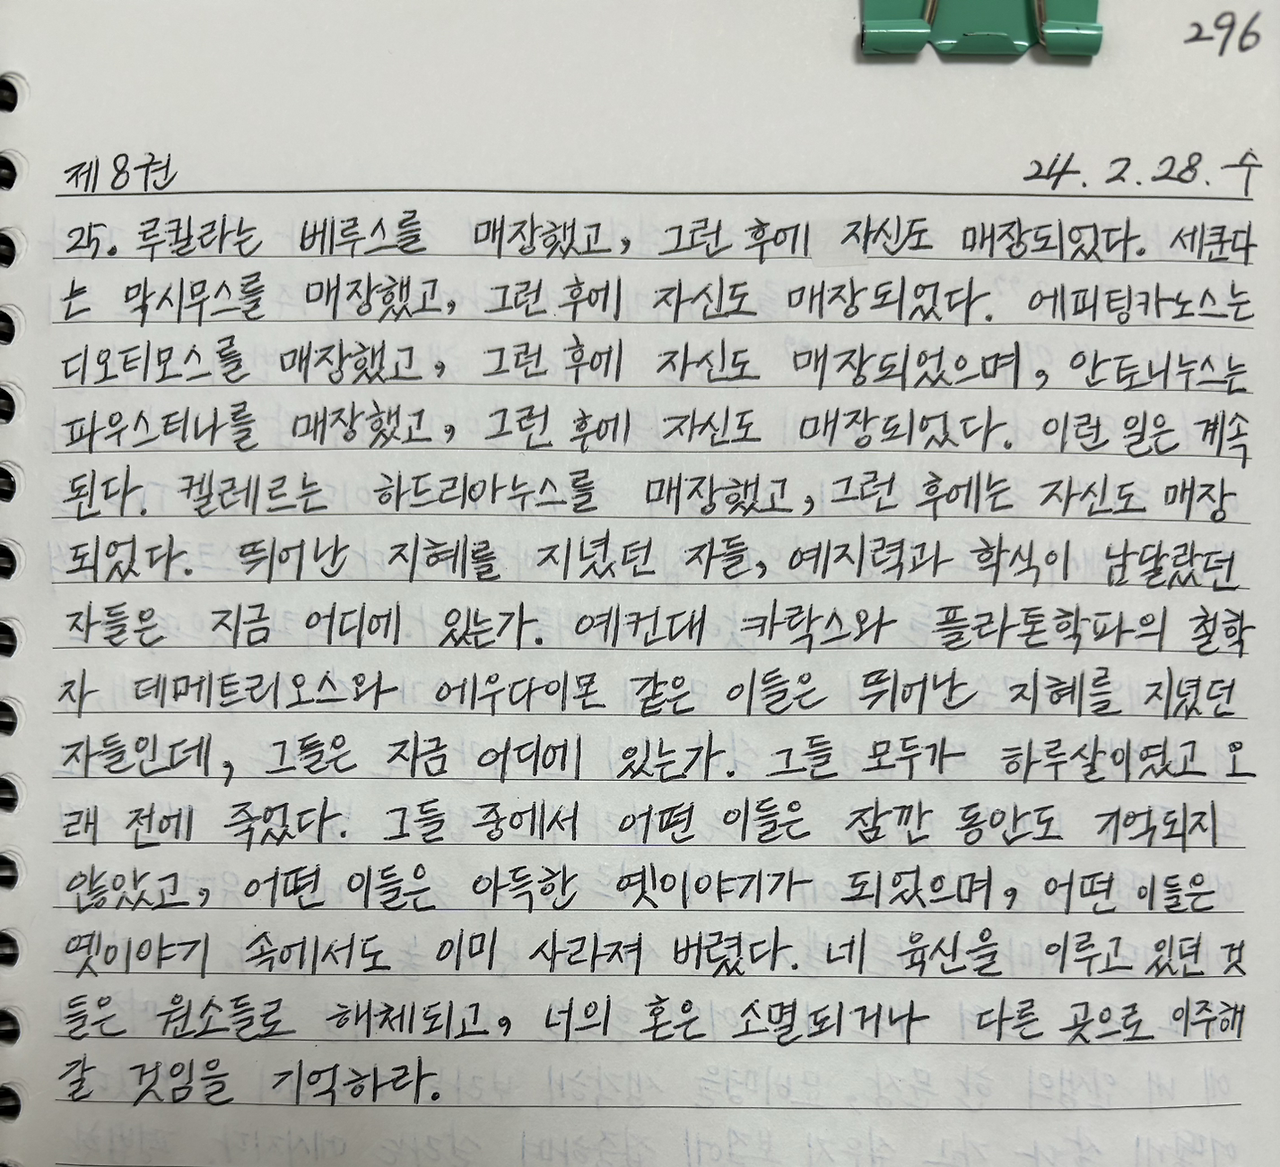 296
제 8권 24. 2. 28. 수
25. 루킬라는 베루스를 매장했고, 그런 후에 자신도 매장되었다. 세쿤다
는 막시무스를 매장했고, 그런 후에 자신도 매장되었다. 에피팅카노스는
디오티모스를 매장했고, 그런 후에 자신도 매장되었으며, 안토니누스는
파우스티나를 매장했고, 그런 후에 자신도 매장되었다. 이런 일은 계속
된다. 켈레르는 하드리아누스를 매장했고, 그런 후에는 자신도 매장
되었다. 뛰어난 지혜를 지녔던 자들, 예지력과 학식이 남달랐던
자들은 지금 어디에 있는가. 예컨대 카락스와 플라톤학파의 철학
자 데메트리오스와 에우다이몬 같은 이들은 뛰어난 지혜를 지녔던
자들인데, 그들은 지금 어디에 있는가. 그들 모두가 하루살이였고 오
래 전에 죽었다. 그들 중에서 어떤 이들은 잠깐 동안도 기억되지
않았고, 어떤 이들은 아득한 옛이야기가 되었으며, 어떤 이들은
옛이야기 속에서도 이미 사라져 버렸다. 네 육신을 이루고 있던 것
들은 원소들로 해체되고, 너의 혼은 소멸되거나 다른 곳으로 이주해
갈 것임을 기억하라.